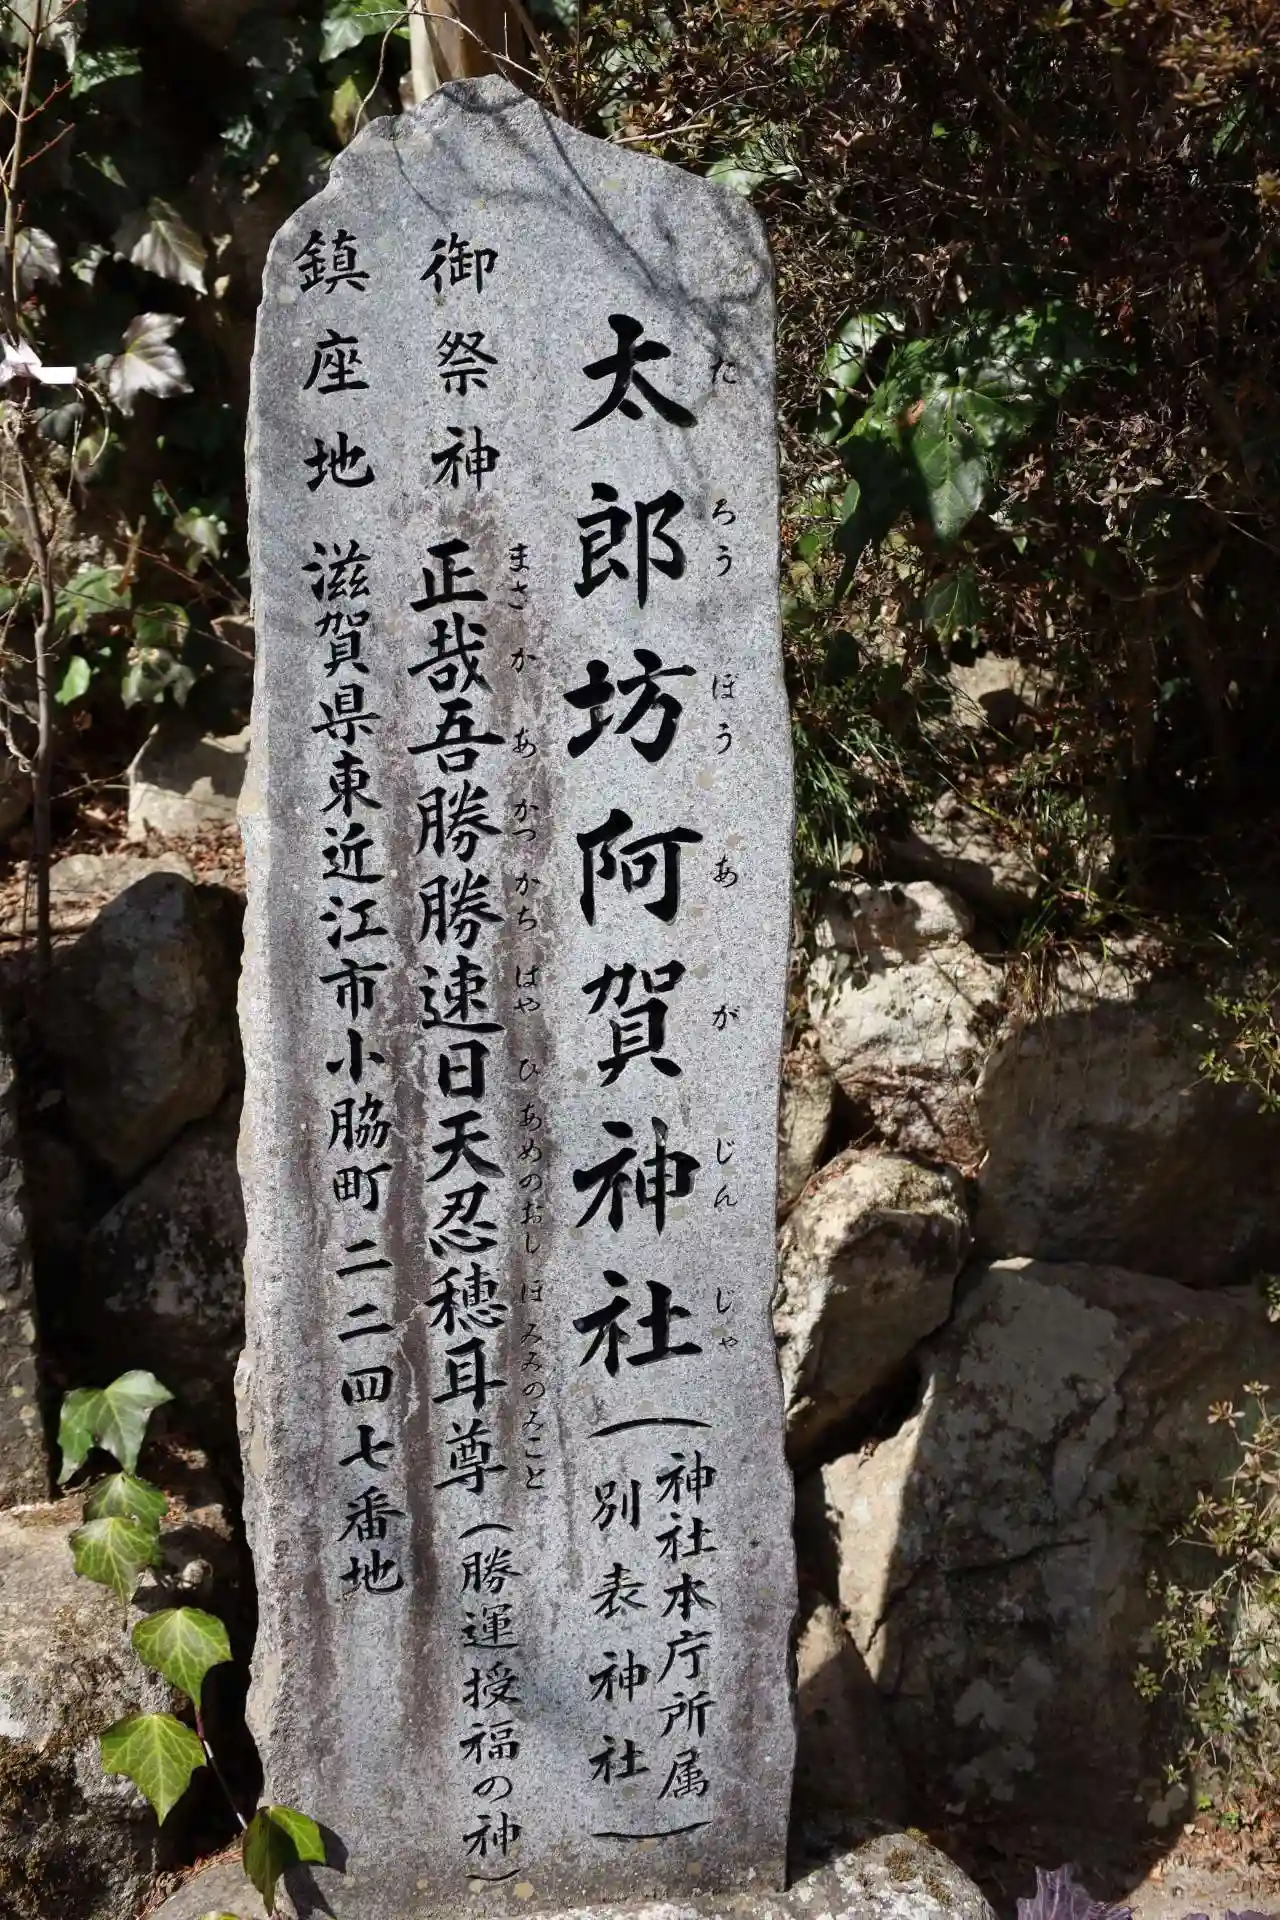 太郎坊阿賀神社(神社本庁所属
別表神社)
たろうぼうあがじんじゃ
御祭神 正哉吾勝勝速日天忍穂耳尊(勝運授福の神)
まさかあかつかちはやひあめのおしほみみのみこと
鎮座地 滋賀県東近江市小脇町二二四七番地